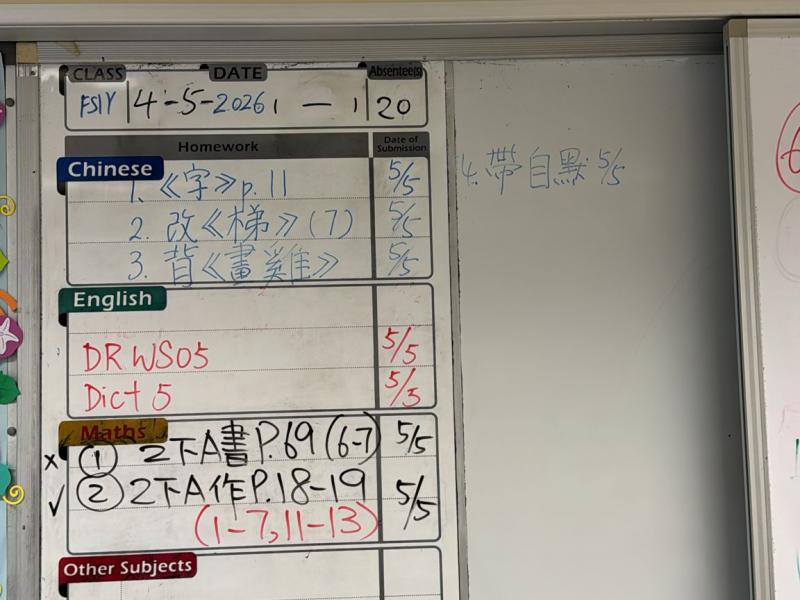 CLASS DATE Absentee(s)
4-5-2026 1 — 1 20
Homework Date of Submission
Chinese
1. 《字》p. 11 5/5
2. 改《梯》(7) 5/5
3. 背《畫雞》 5/5
4. 帶自默 5/5
English
DR WS05 5/5
Dict 5 5/5
Maths
x ① 2下A書 P.69 (6-7) 5/5
✓ ② 2下A作 P.18-19 5/5
(1-7, 11-13)
Other Subjects